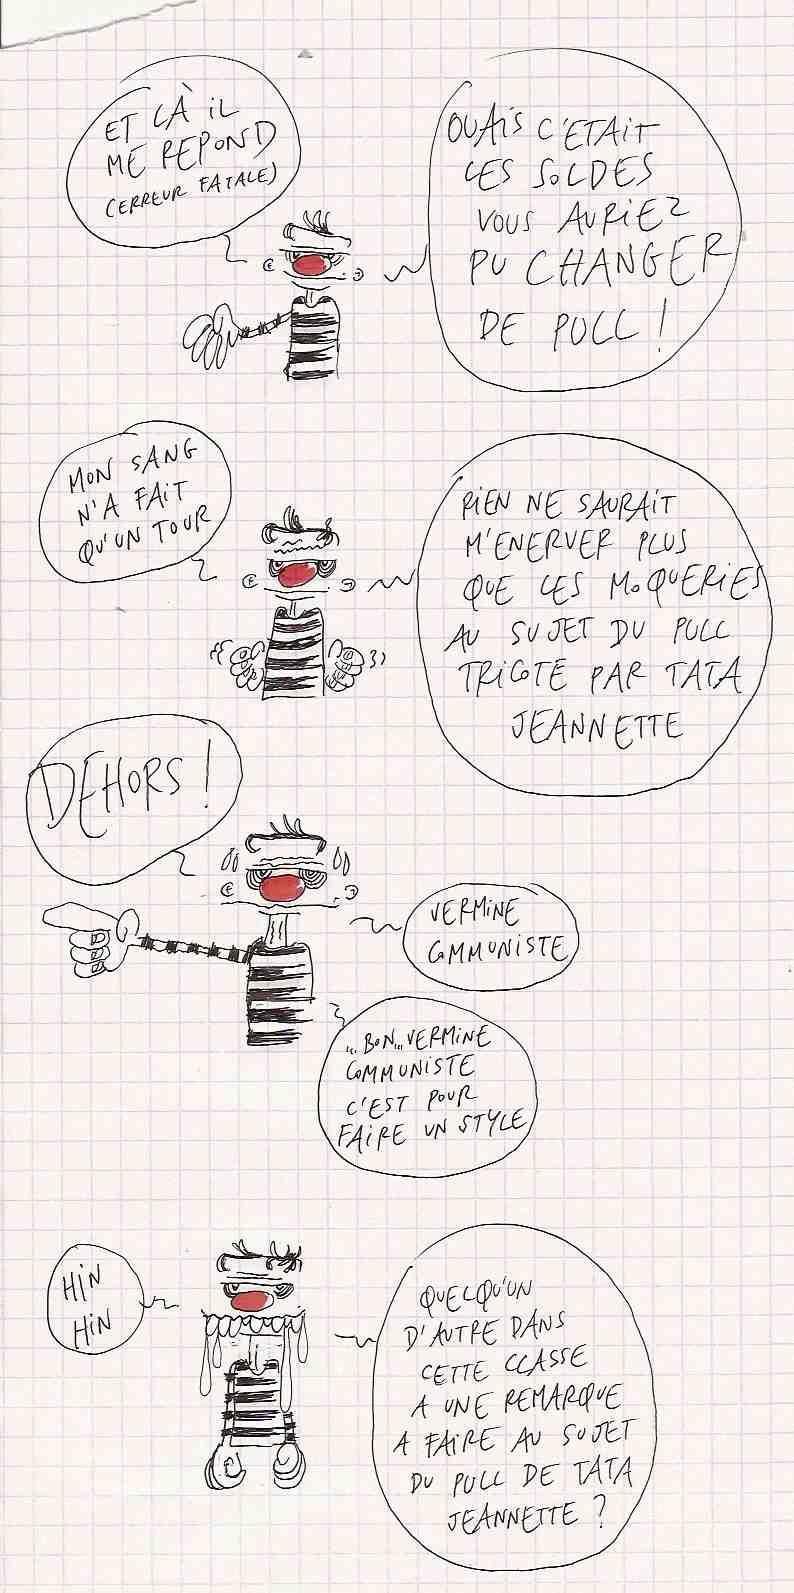 ET LÀ IL
ME REPOND
(ERREUR FATALE)
OUAIS C'ETAIT
LES SOLDES
VOUS AURIEZ
PU CHANGER
DE PULL !
MON SANG
N'A FAIT
QU'UN TOUR
RIEN NE SAURAIT
M'ENERVER PLUS
QUE LES MOQUERIES
AU SUJET DU PULL
TRICOTE PAR TATA
JEANNETTE
DEHORS !
VERMINE
COMMUNISTE
...BON...VERMINE
COMMUNISTE
C'EST POUR
FAIRE UN STYLE
HIN
HIN
QUELQU'UN
D'AUTRE DANS
CETTE CLASSE
A UNE REMARQUE
A FAIRE AU SUJET
DU PULL DE TATA
JEANNETTE ?